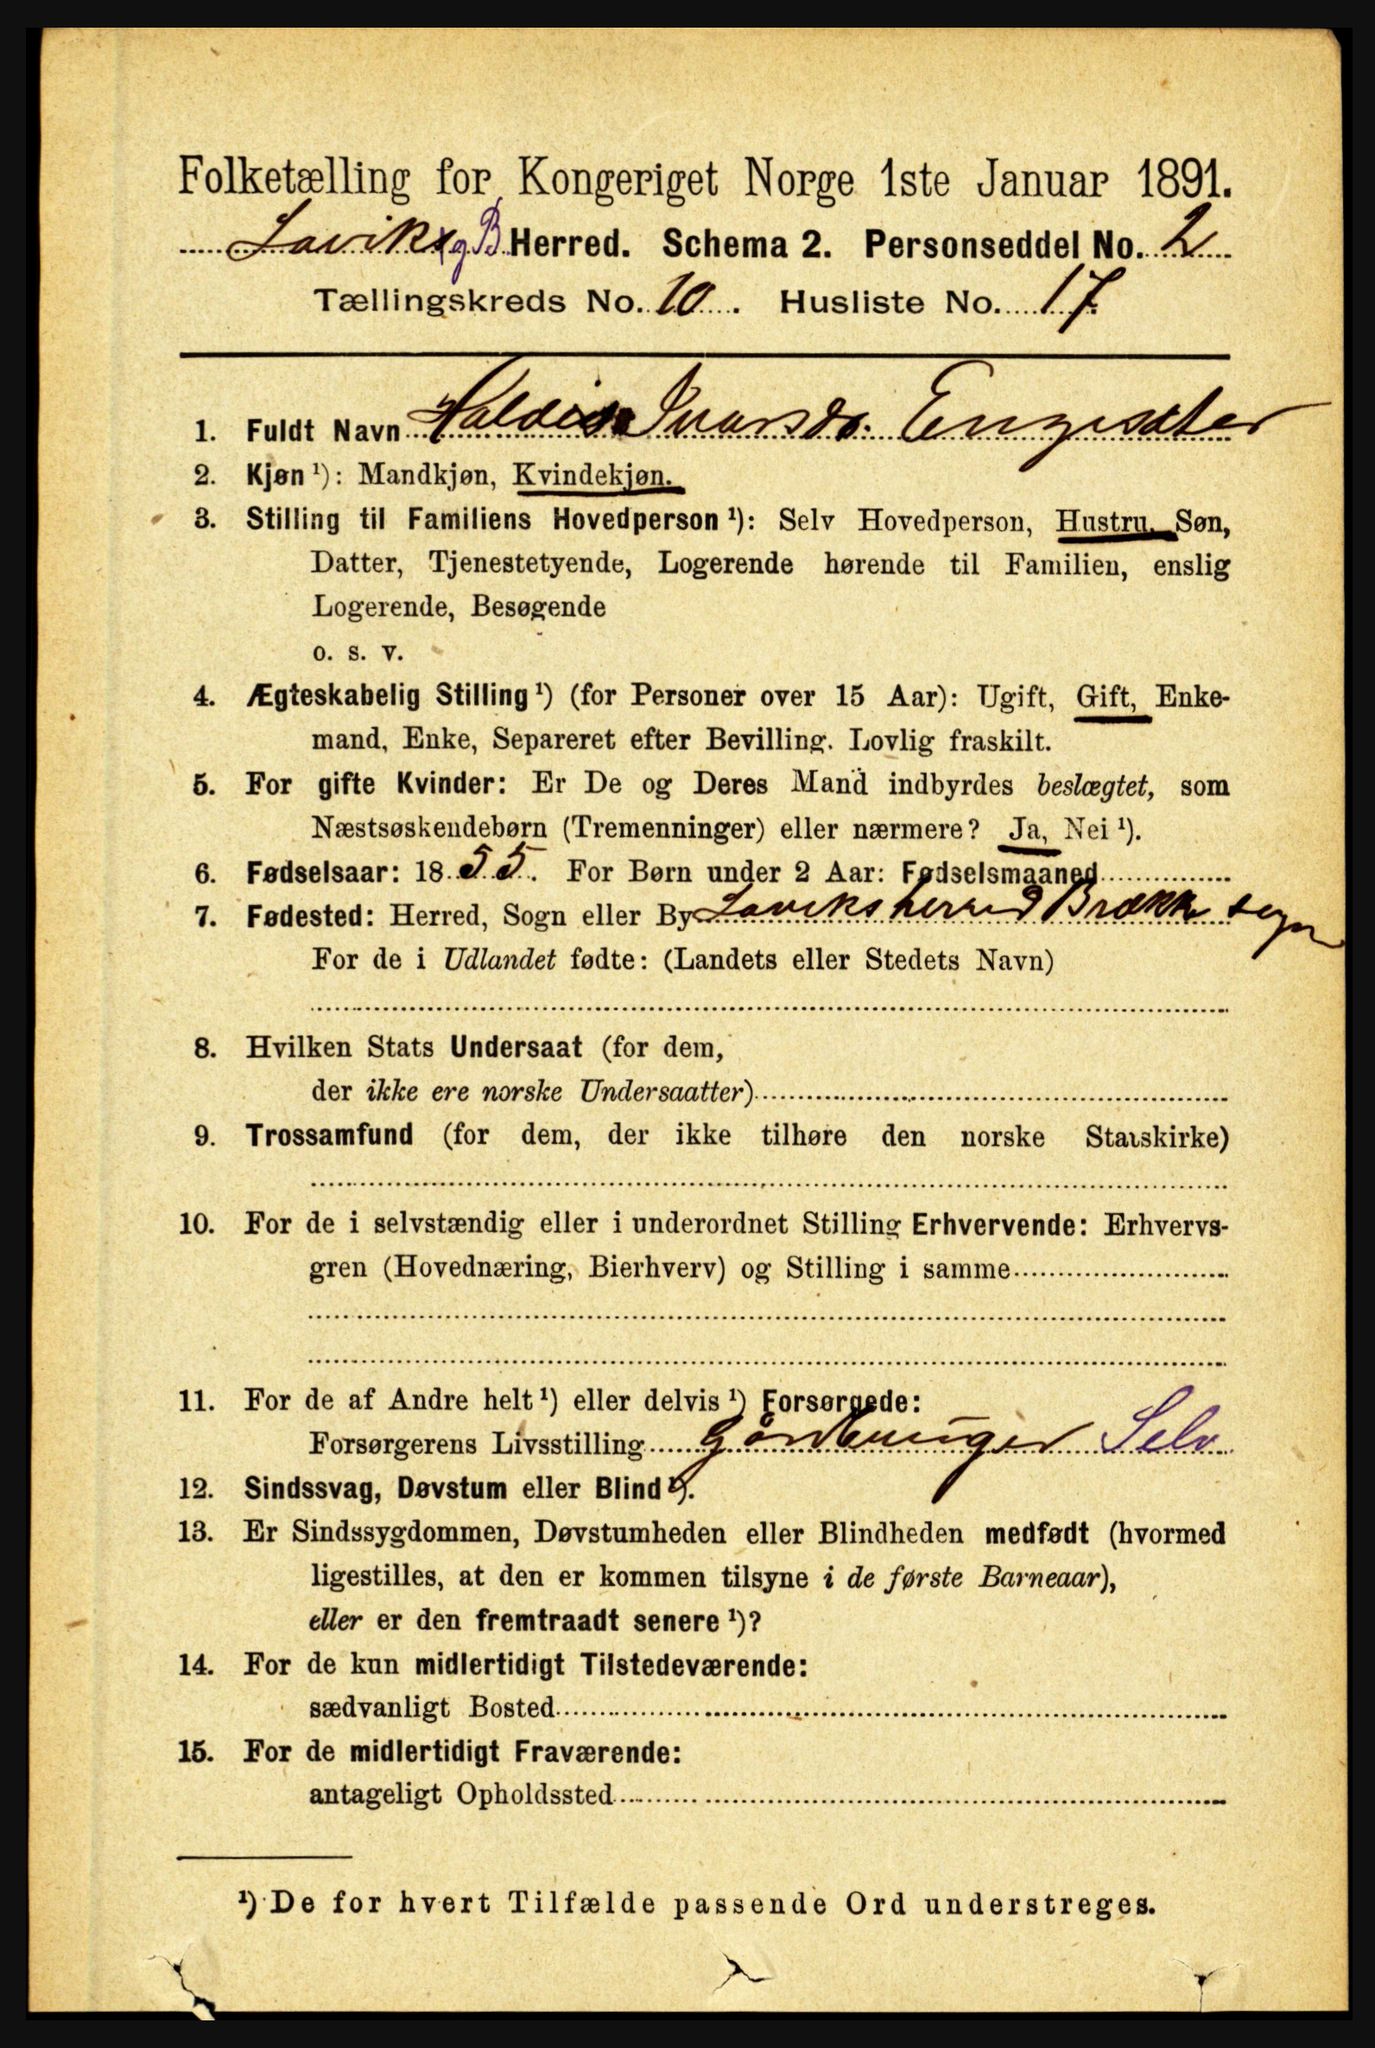 Folketælling for Kongeriget Norge 1ste Januar 1891.
Lavik og B. Herred. Schema 2. Personseddel No. 2
Tællingskreds No. 10. Husliste No. 17.
1. Fuldt Navn Haldis Ivarsdr. Engesæter
2. Kjøn ¹): Mandkjøn, Kvindekjøn.
3. Stilling til Familiens Hovedperson ¹): Selv Hovedperson, Hustru, Søn,
Datter, Tjenestetyende, Logerende hørende til Familien, enslig
Logerende, Besøgende
o. s. v.
4. Ægteskabelig Stilling ¹) (for Personer over 15 Aar): Ugift, Gift, Enke-
mand, Enke, Separeret efter Bevilling. Lovlig fraskilt.
5. For gifte Kvinder: Er De og Deres Mand indbyrdes beslægtet, som
Næstsøskendebørn (Tremenninger) eller nærmere? Ja, Nei ¹).
6. Fødselsaar: 1855. For Børn under 2 Aar: Fødselsmaaned
7. Fødested: Herred, Sogn eller By Laviks herred Brække sogn
For de i Udlandet fødte: (Landets eller Stedets Navn)
8. Hvilken Stats Undersaat (for dem,
der ikke ere norske Undersaatter)
9. Trossamfund (for dem, der ikke tilhøre den norske Statskirke)
10. For de i selvstændig eller i underordnet Stilling Erhvervende: Erhvervs-
gren (Hovednæring, Bierhverv) og Stilling i samme
11. For de af Andre helt ¹) eller delvis ¹) Forsørgede:
Forsørgerens Livsstilling Gårdbruger Selv
12. Sindssvag, Døvstum eller Blind ¹).
13. Er Sindssygdommen, Døvstumheden eller Blindheden medfødt (hvormed
ligestilles, at den er kommen tilsyne i de første Barneaar),
eller er den fremtraadt senere ¹)?
14. For de kun midlertidigt Tilstedeværende:
sædvanligt Bosted
15. For de midlertidigt Fraværende:
antageligt Opholdssted
¹) De for hvert Tilfælde passende Ord understreges.